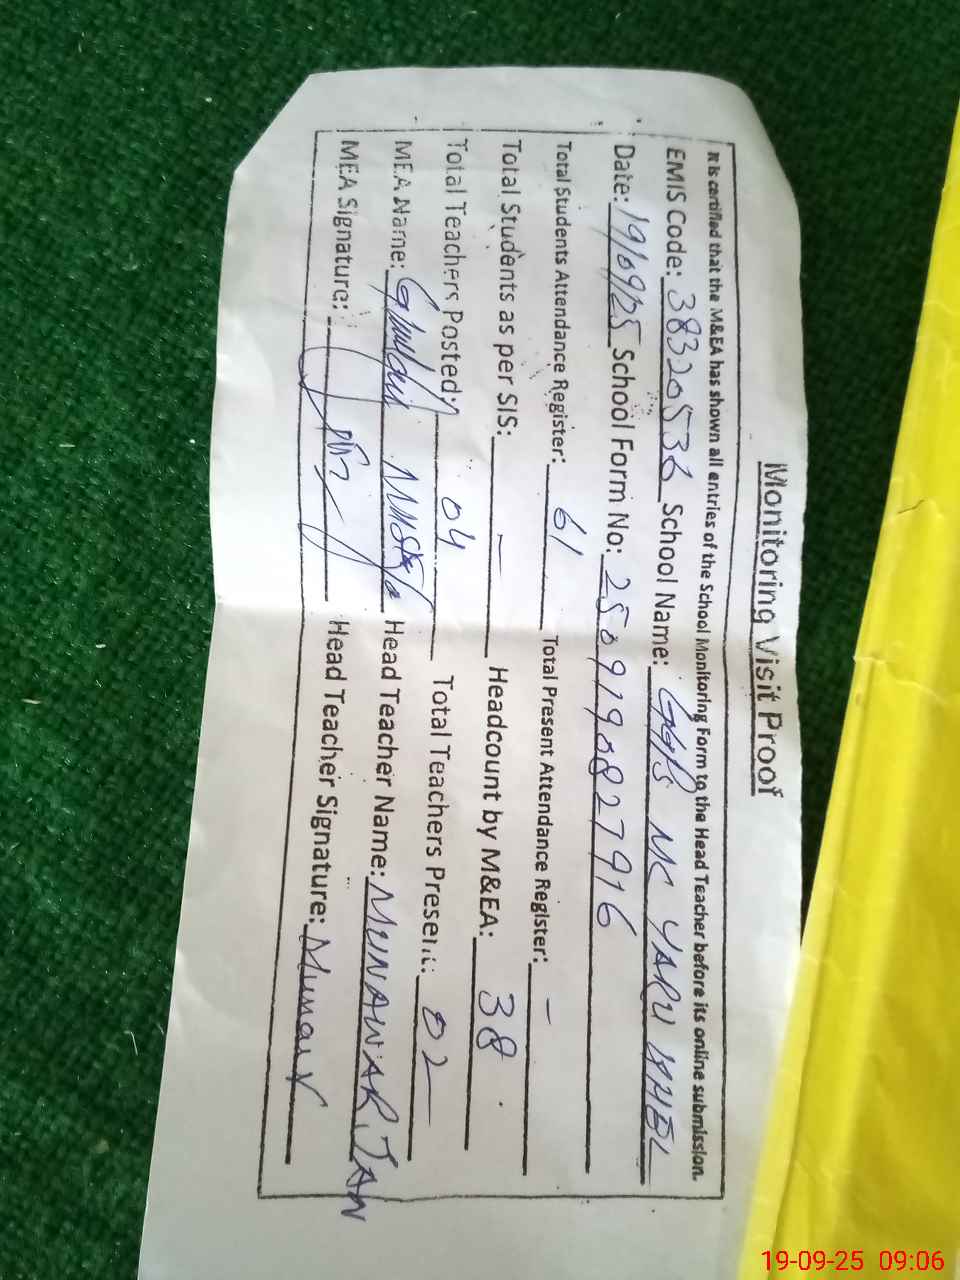 Monitoring Visit Proof
It is certified that the M&EA has shown all entries of the School Monitoring Form to the Head Teacher before its online submission.
EMIS Code: 38320536 School Name: GGPS MC YARU KHEL
Date: 19/09/25 School Form No: 2509190827916
Total Students Attendance Register: 61 Total Present Attendance Register: –
Total Students as per SIS: – Headcount by M&EA: 38
Total Teachers Posted: 04 Total Teachers Present: 02
MEA Name: Ghulam Mustafa Head Teacher Name: MUNAWAR JAN
MEA Signature: Head Teacher Signature: Munawar
19-09-25 09:06